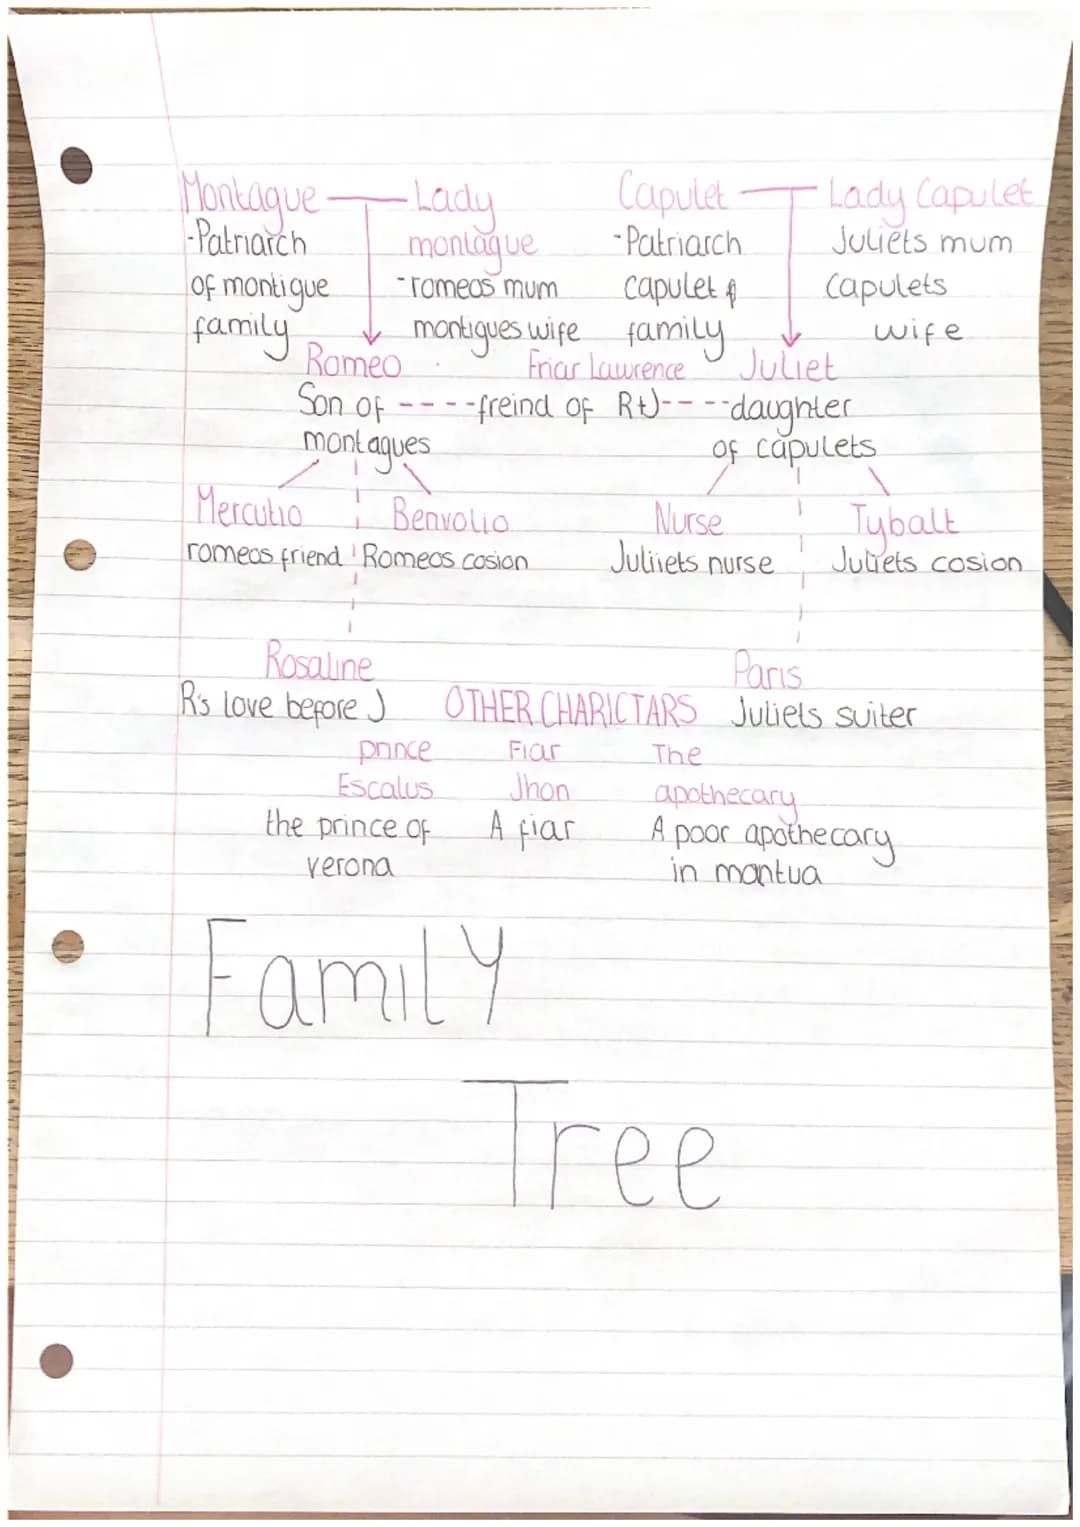 Montague Lady Capulet Lady Capulet
-Patriarch montague -Patriarch Juliets mum
of montigue -romeos mum capulet Capulets
family montigues wife family wife
Romeo Friar Lawrence Juliet
Son of ----freind of R+J-- --daughter
montagues of capulets
Mercutio Benvolio Nurse Tybalt
romeos friend Romeos cosion Juliiets nurse Juliets cosion
Rosaline Paris
R's love before J OTHER CHARICTARS Juliets suiter
prince Fiar The
Escalus Jhon apothecary
the prince of A fiar A poor apothecary
verona in mantua
Family
Tree